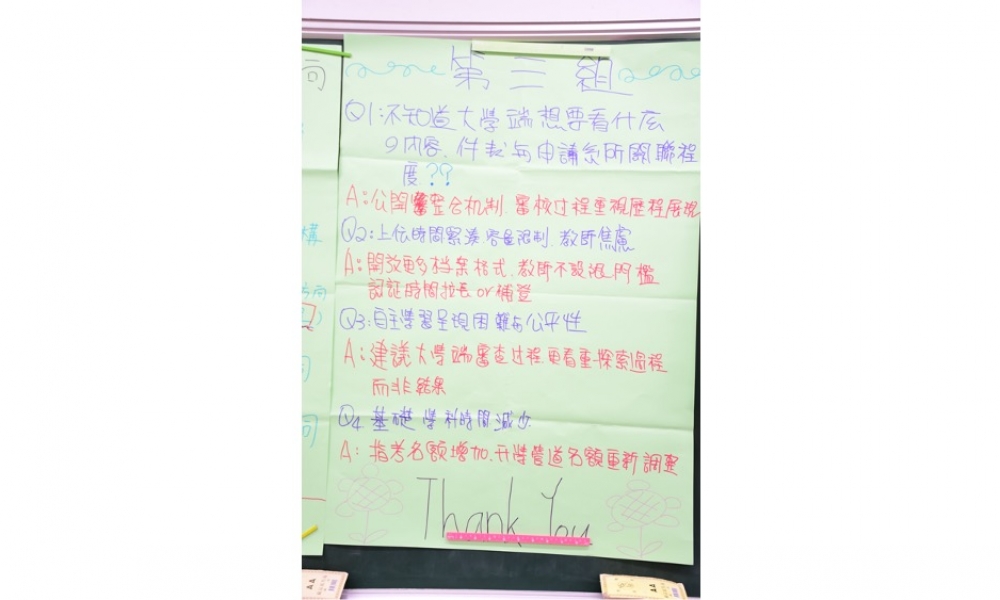 第三組
Q1:不知道大學端想要看什么
內容、件數与申請系所關聯程
度??
A:公開審查整合机制、審核过程重視歷程展現
Q2:上传時間緊湊、容量限制、教師焦慮
A:開放更多档案格式、教師不設限門檻
認証時間拉長or補登
Q3:自主學習呈現困難与公平性
A:建議大學端審查过程更看重探索過程
而非結果
Q4 基礎學科時間減少
A:指考名額增加、升學管道名額重新調整
Thank You
同
構
方向
同